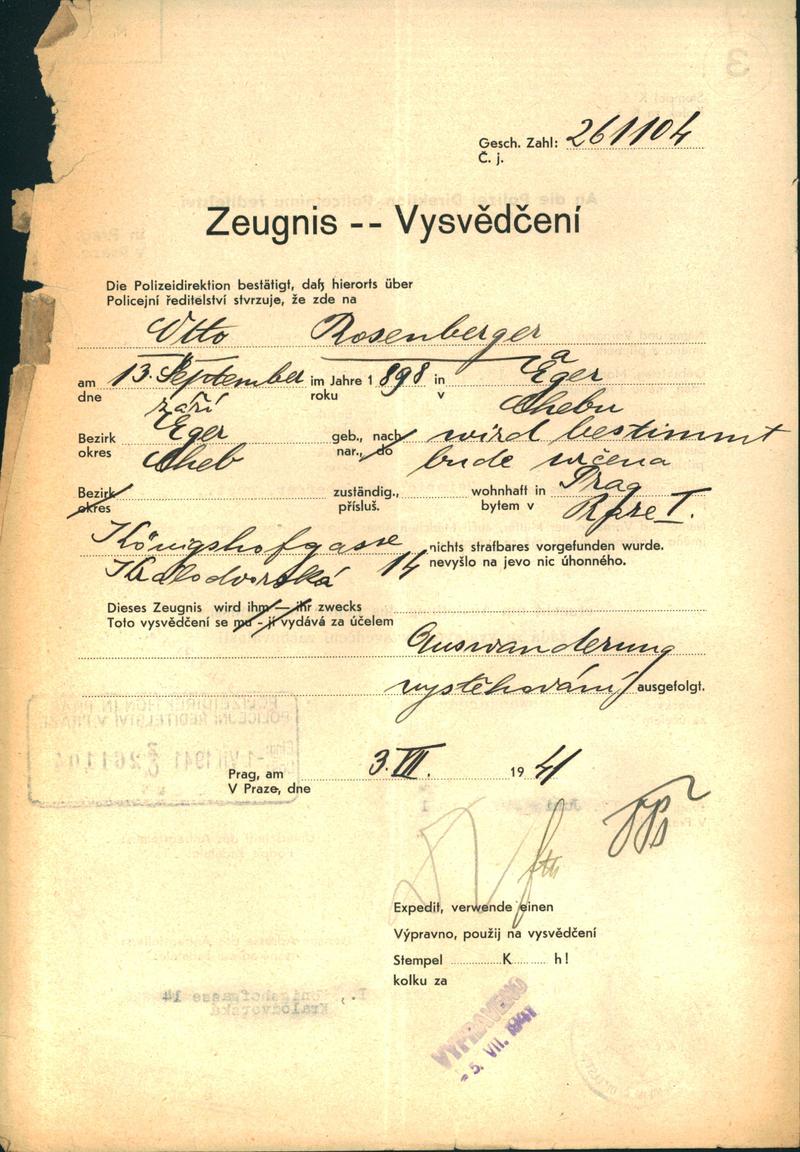 Gesch. Zahl: 261104
Č. j.
Zeugnis -- Vysvědčení
Die Polizeidirektion bestätigt, daß hierorts über
Policejní ředitelství stvrzuje, že zde na
Otto Rosenberger a
am 13. September im Jahre 1 898 in Eger
dne září roku v Chebu
Bezirk Eger geb., nach wird bestimmt
okres Cheb nar., do bude určena
Bezirk zuständig., wohnhaft in Prag
okres přísluš. bytem v Praze I.
Königshofgasse nichts strafbares vorgefunden wurde.
Králodvorská 14 nevyšlo na jevo nic úhonného.
Dieses Zeugnis wird ihm — ihr zwecks
Toto vysvědčení se mu - jí vydává za účelem
Auswanderung
vystěhování ausgefolgt.
POLIZEIDIREKTION IN PRAG
POLICEJNÍ ŘEDITELSTVÍ V PRAZE
-1. VII 1941
261104
Prag, am 3. VII. 19 41
V Praze, dne
Expedit, verwende einen
Výpravno, použij na vysvědčení
Stempel K h!
kolku za
I., Königshofgasse 14
Králodvorská
VYPRAVENO
- 5. VII. 1941